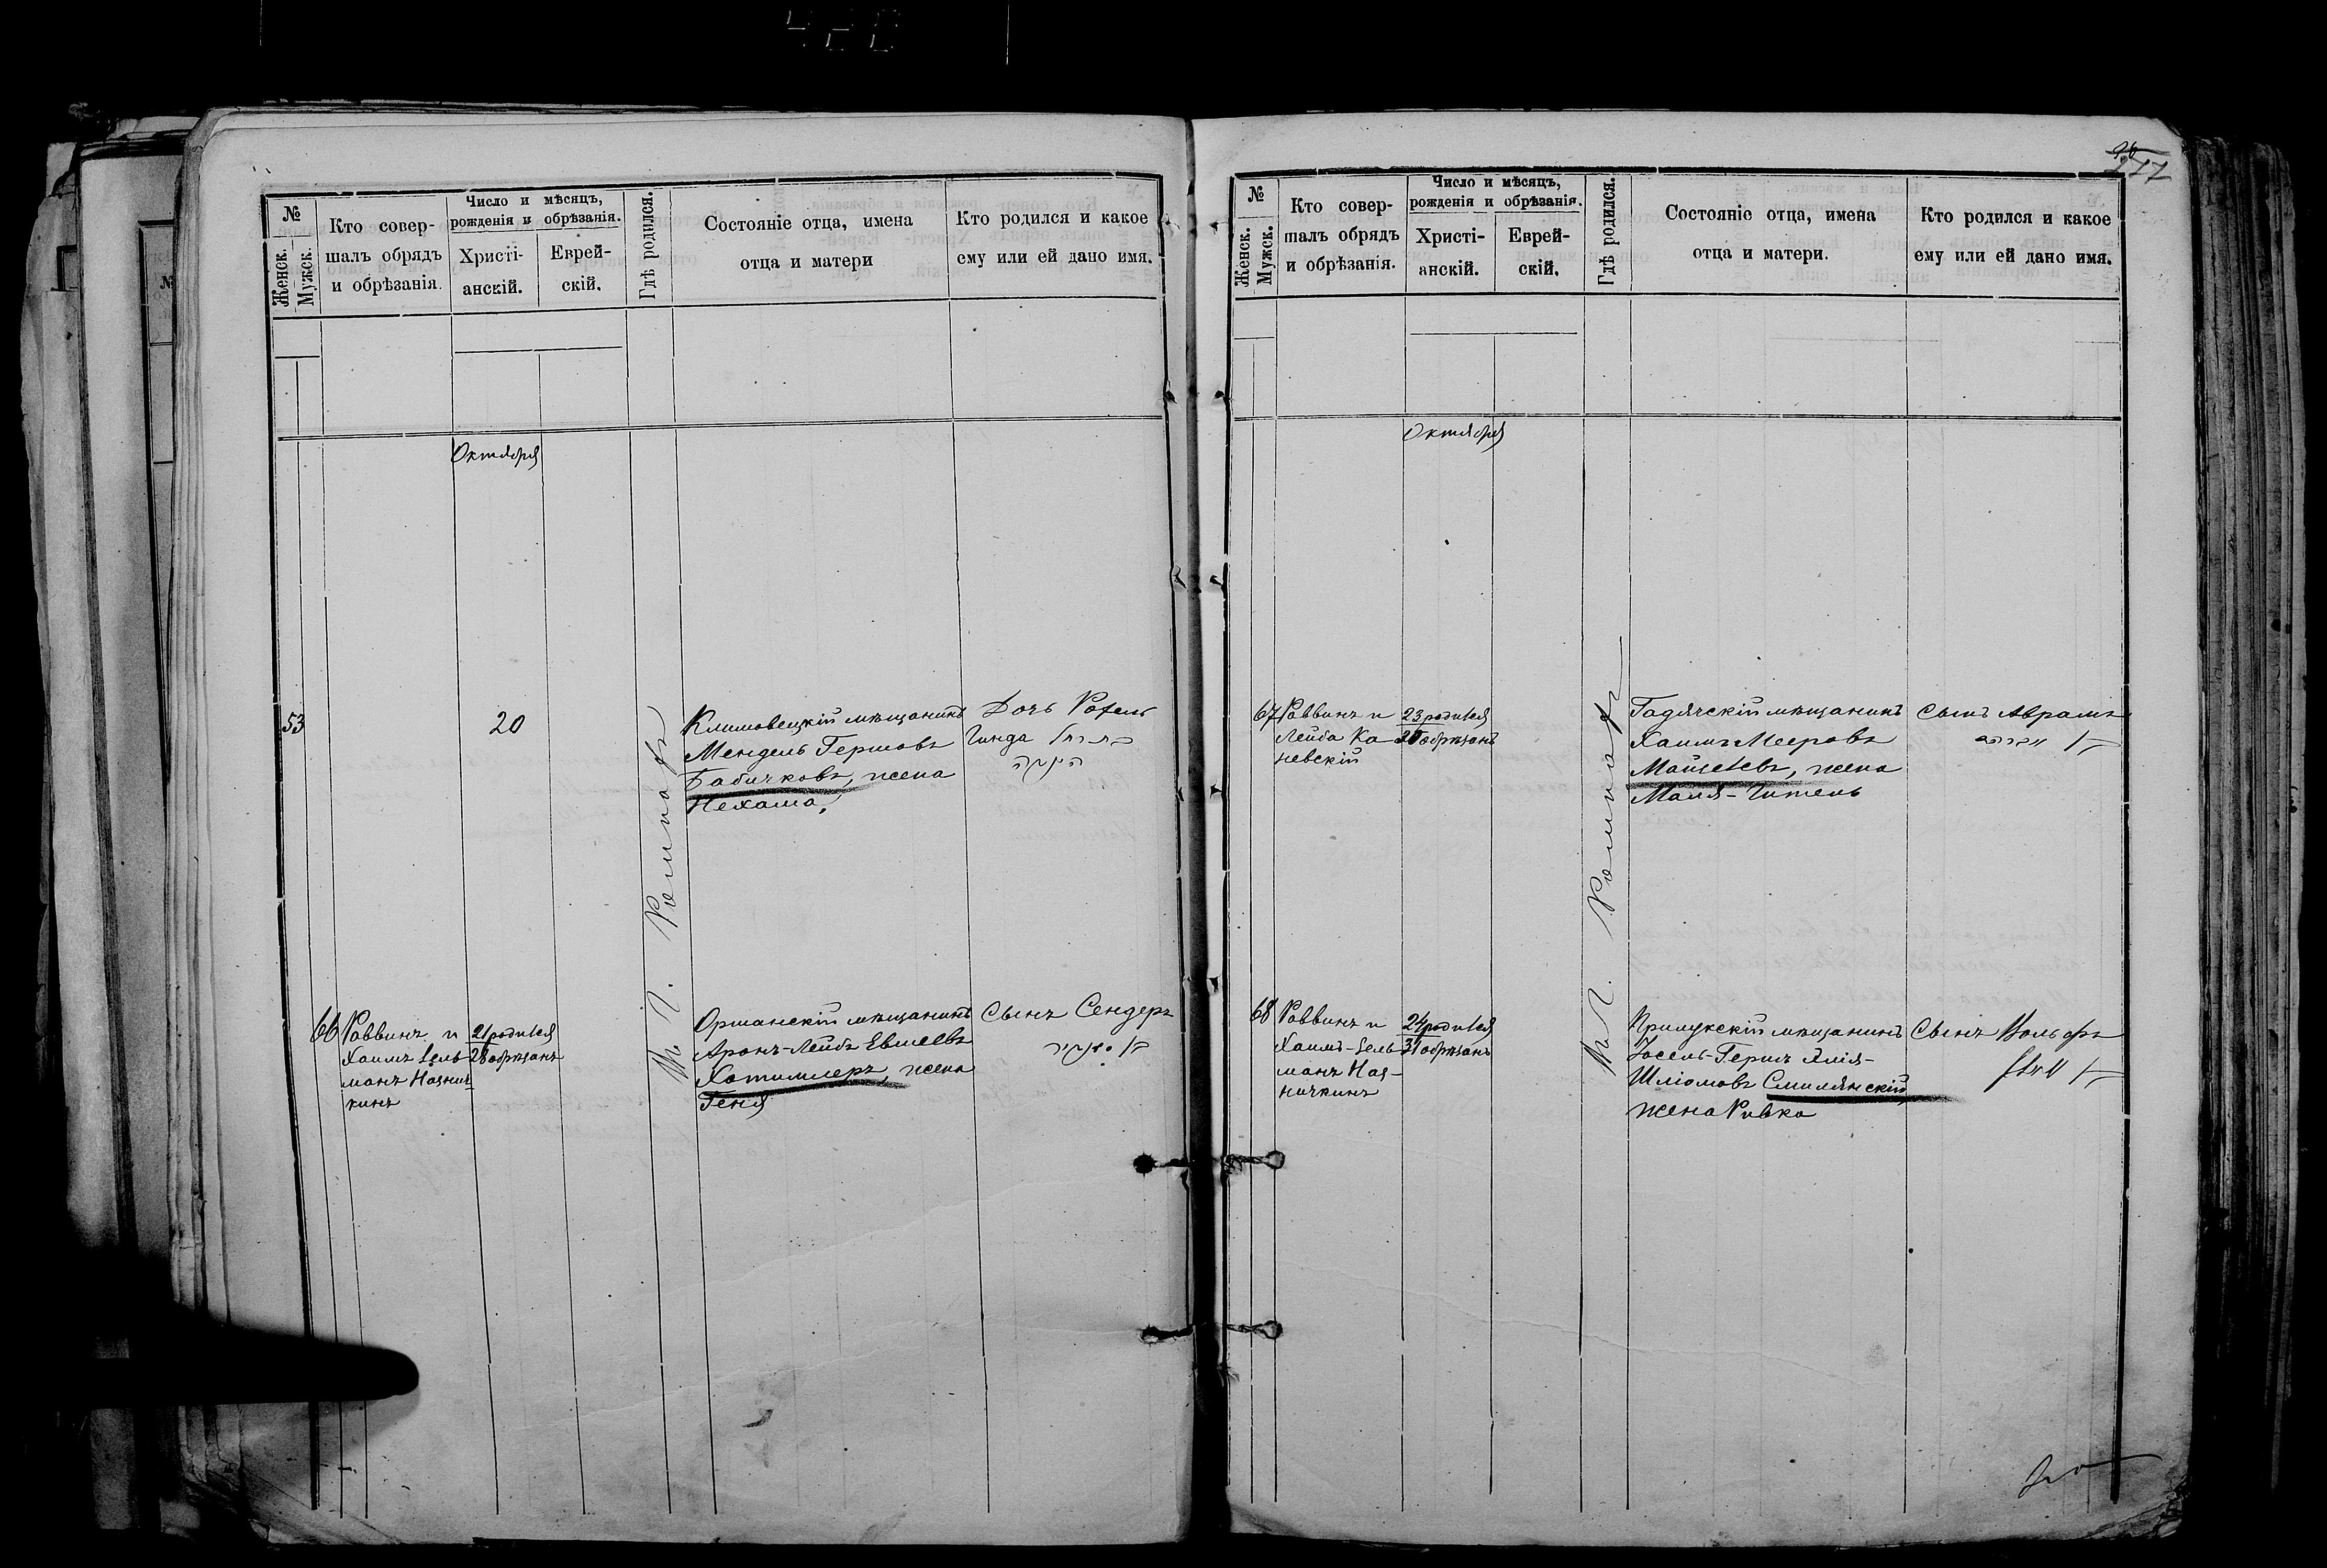 №
Женск.
Мужск.
Кто совер-
шалъ обрядъ
и обрѣзанія.
Число и мѣсяцъ,
рожденія и обрѣзанія.
Христі-
анскій.
Еврей-
скій.
Гдѣ родился.
Состояніе отца, имена
отца и матери
Кто родился и какое
ему или ей дано имя.
Октября
53
20
М. П. Ромнахъ
Климовецкій мѣщанинъ
Мендель Гершовъ
Бабичковъ, жена
Нехама,
Дочь Рохель
Гинда
66
Раввинъ и
Хаимъ Зель-
манъ Наянич
кинъ
21 родился
28 обрѣзанъ
Оршанскій мѣщанинъ
Аронъ-Лейбъ Евшеевъ
Хотимлеръ, жена
Геня
Сынъ Сендеръ
277
№
Женск.
Мужск.
Кто совер-
шалъ обрядъ
и обрѣзанія.
Число и мѣсяцъ,
рожденія и обрѣзанія.
Христі-
анскій.
Еврей-
скій.
Гдѣ родился.
Состояніе отца, имена
отца и матери.
Кто родился и какое
ему или ей дано имя.
Октября
67
Раввинъ и
Лейба Ка-
невскій
23 родился
обрѣзанъ
Гадячскій мѣщанинъ
Хаимъ Мееровъ
жена
Маля-Гитель
Сынъ Абрамъ
68
Раввинъ и
Хаимъ-Зель-
манъ Ная-
ничкинъ
24 родился
31 обрѣзанъ
М. П. Ромнахъ
Прилукскій мѣщанинъ
Іосель-Гершъ Элія-
Шліомовъ Смилянскій,
жена Ривка
Сынъ Вольфъ